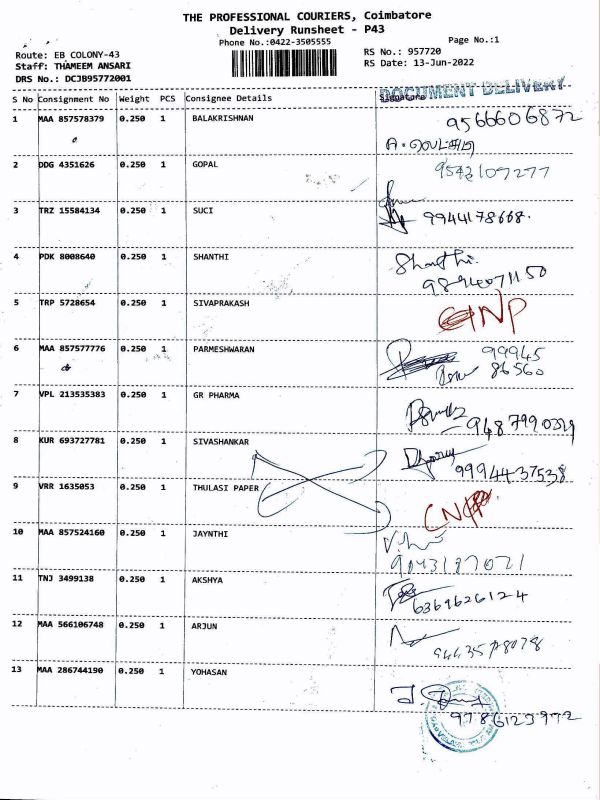 THE PROFESSIONAL COURIERS, Coimbatore
Delivery Runsheet - P43
Phone No.:0422-3505555
Page No.:1
Route: EB COLONY-43
RS No.: 957720
Staff: THAMEEM ANSARI
RS Date: 13-Jun-2022
DRS No.: DCJB95772001
DOCUMENT DELIVERY
S No Consignment No Weight PCS Consignee Details Signature
1 MAA 857578379 0.250 1 BALAKRISHNAN 9566606872
2 DDG 4351626 0.250 1 GOPAL 9543109277
3 TRZ 15584134 0.250 1 SUCI 9944178668.
4 PDK 8008640 0.250 1 SHANTHI Shanthi.
9894071150
5 TRP 5728654 0.250 1 SIVAPRAKASH NP
6 MAA 857577776 0.250 1 PARMESHWARAN 99945
86560
7 VPL 213535383 0.250 1 GR PHARMA
8 KUR 693727781 0.250 1 SIVASHANKAR 9994437538
9 VRR 1635053 0.250 1 THULASI PAPER
10 MAA 857524160 0.250 1 JAYNTHI
11 TNJ 3499138 0.250 1 AKSHYA 6369626124
12 MAA 566106748 0.250 1 ARJUN
13 MAA 286744190 0.250 1 YOHASAN
9786129972